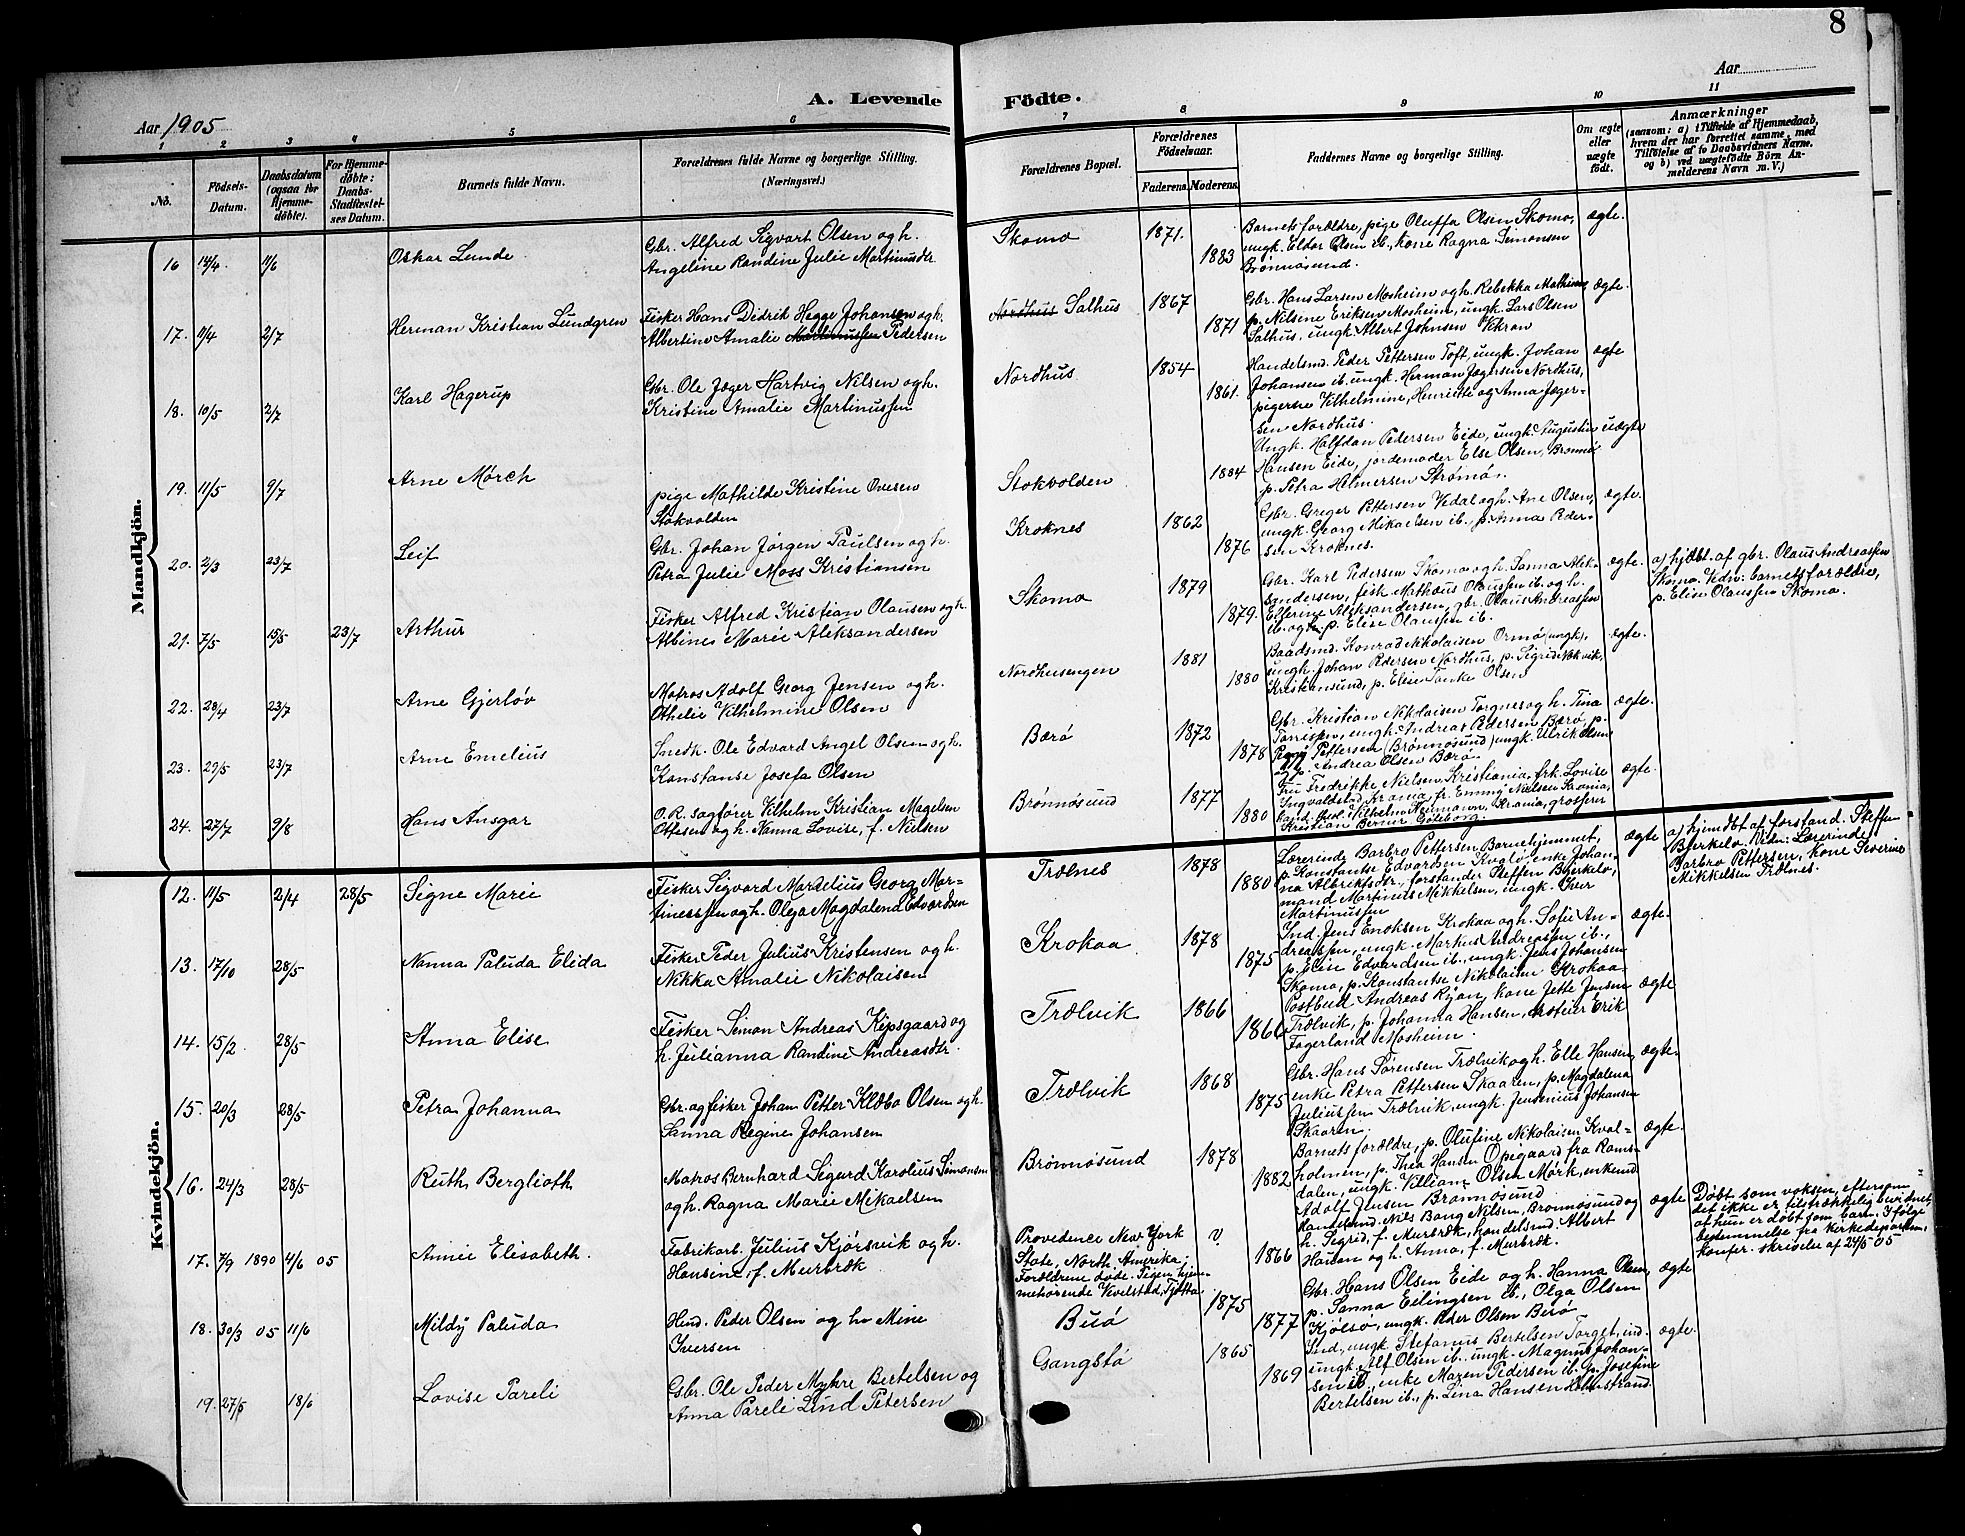 8
A. Levende Födte.
Aar 1905
Aar
1 2 3 4 5 6 7 8 9 10 11
No.
Födsels-Datum.
Daabsdatum (ogsaa for Hjemmedöbte).
For Hjemmedöbte: Daabs-Stadfæstelses Datum.
Barnets fulde Navn.
Forældrenes fulde Navne og borgerlige Stilling. (Næringsvei.)
Forældrenes Bopæl.
Forældrenes Födselsaar.
Faderens. Moderens.
Faddernes Navne og borgerlige Stilling.
Om ægte eller uægte födt.
Anmærkninger
(saasom: a) i Tilfælde af Hjemmedaab, hvem der har forrettet samme, med Tilföielse af to Daabsvidners Navne. og b) ved uægtefödte Börn Anmelderens Navn m. V.)
Mandkjön.
16 14/4 11/6 Oskar Lunde
Gbr. Alfred Sigvart Olsen og h.
Angeline Randine Julie Martinusdtr
Skomo 1871. 1883
Barnets forældre, pige Oluffa Olsen Skomo,
ungk. Eldor Olsen ib., Kone Ragna Simonsen
Brønnøsund.
ægte.
17. 11/4 2/7 Herman Kristian Lundgren
Fisker Hans Didrik Hegge Johansen og h.
Albertine Amalie Martinussen Pedersen
Nordhus Salhus 1867 1871
Gbr. Hans Larsen Mosheim og h. Rebekka
p. Nilsine Eriksen Mosheim, ungk. Lars Olsen
Salhus, ungk. Albert Johnsen Vikran
ægte.
18. 10/5 2/7 Karl Hagerup
Gbr. Ole Jæger Hartvig Nilsen og h.
Kristine Amalie Martinussen
Nordhus 1854 1861.
Handelsmd. Peder Pettersen Toft, ungk. Johan
Johansen ib. ungk. Herman Jægersen Nordhus,
pigerne Vilhelmine, Henriette og Anna Jæger-
sen Nordhus.
ægte
19. 11/5 9/7 Arne Mørch
pige Mathilde Kristine Oversen
Stokvolden
Stokvolden 1884
Ungk. Halfdan Pedersen Eide, ungk. Augustin
Hansen Eide, jordemoder Else Olsen, Brønnø
p. Petra Helmersen Strømø.
uægte
20. 2/3 23/7 Leif
Gbr. Johan Jørgen Paulsen og h.
Petra Julie Moss Kristiansen
Kroknes 1862 1876
Gbr. Greger Pettersen Vedal og h. Ane Olsen,
ungk. Georg Mikaelsen ib., p. Anna Peder-
sen Kroknes.
ægte.
21. 7/5 15/5 23/7 Arthur
Fisker Alfred Kristian Olausen og h.
Albine Marie Aleksandersen
Skomo 1879 1879.
Gbr. Karl Pedersen Skomo og h. Sanna Alek-
sandersen, fisk. Mathæus Olaussen ib. og h.
Elferine Aleksandersen, gbr. Olaus Andreassen
ib. og h. p. Elise Olaussen ib.
ægte.
a) hjdbt. af gbr. Olaus Andreassen
Skomo. Vidn: barnets forældre,
p. Elise Olaussen Skomo.
22. 28/4 23/7 Arne Gjerløv
Matros Adolf Georg Jensen og h.
Othelie Vilhelmine Olsen
Nordhusengen 1881 1880
Baadsmd. Konrad Nikolaisen Ormø (ungk),
ungk. Johan Pedersen Nordhus, p. Sigrid
Kristiansund, p. Elise Tanke Olsen
ægte.
23. 29/5 23/7 Arne Emelius
Snedk. Ole Edvard Angel Olsen og h.
Konstanse Josefa Olsen
Bærø 1872 1878
Gbr. Kristian Nikolaisen Torgnes og h. Tina
ungk. Andreas Pedersen Bærø, p.
Pettersen (Brønnøsund) ungk. Ulrik Olsen
og p. Andrea Olsen Bærø.
ægte.
24. 27/7 9/8 Hans Ansgar
O. R. sagfører Vilhelm Kristian Magelsen
Ottesen og h. Nanna Lovise, f. Nielsen
Brønnøsund 1877 1880
Fru Fredrikke Nielsen Kristiania, frk. Lovise
Ingvaldstad Krania, fr. Emmy Nielsen Krania,
Vilhelm Neumann, Krania, grosserer
Kristian Berner Göteborg.
ægte.
Kvindekjön.
12. 11/5 2/4 28/5 Signe Marie
Fisker Sigvard Mardelius Georg Mar-
tinessen og h. Olga Magdalena Edvardsen
Trælnes 1878 1880
Lærerinde Barbro Pettersen Barnehjemmet,
p. Konstanse Edvardsen Kvalø, enke Johan-
na Albriktsdtr., forstander Steffen Bjerkelo,
mand Martinus Mikkelsen, ungk. Iver
Martinussen
ægte
a) hjemdbt af forstand. Steffen
Bjerkelo. Vidn: Lærerinde
Barbro Pettersen, Kone Severine
Mikkelsen Trælnes.
13. 17/10 28/5 Nanna Paluda Elida
Fisker Peder Julius Kristensen og h.
Nikka Amalie Nikolaisen
Krokaa 1878 1875
Ind. Jens Enoksen Krokaa og h. Sofie An-
dreassen, ungk. Markus Andreassen ib.,
p. Elise Edvardsen ib., ungk. Jens Johansen
Skomo, p. Konstantse Nikolaisen Krokaa
ægte.
14. 15/2. 28/5 Anna Elise
Fisker Simon Andreas Kipsgaard og
h. Julianna Randine Andreasdtr.
Trælvik 1866 1866
Postbud Andreas Ryan, Kone Jette Jensen
Trælvik, p. Johanna Hansen, Erik
Fagerland Mosheim.
ægte
15. 20/3 28/5 Petra Johanna
Gbr. og fisker Johan Petter Klæbo Olsen og h.
Sanna Regine Johansen
Trælvik 1868 1875
Gbr. Hans Sørensen Trælvik og h. Elle Hansen,
enke Petra Pettersen Skaaren, p. Magdalena
Juliussen Trælvik, ungk. Jensenius Johansen
Skaaren.
ægte.
16. 24/3 28/5 Ruth Berglioth
Matros Bernhard Sigurd Karolius Simonsen
og h. Ragna Marie Mikaelsen
Brønnøsund 1878 1882
Barnets forældre, p. Olufine Nikolaisen Kval-
holmen, p. Thea Hansen Opegaard fra Rams-
dalen, ungk. Villian Olsen Mørk, enkemd
Adolf Jensen Brønnøsund
ægte.
17. 7/9 1890 4/6 05 Annie Elisabeth.
Fabrikarb. Julius Kjørsvik og h.
Hansine f. Murbræk
Providence New York
State, North Amerika;
Forældrene døde. Pigen hjem-
mehørende Vevelstad, Tjøtta
v 1866
Handelsmd. Nils Bang Nilsen, Brønnøsund og
h. Sigrid, f. Murbræk, handelsmd. Albert
Hansen og h. Anna, f. Murbræk.
ægte
Døbt som voksen, eftersom
det ikke er tilstrækkelig bevidnet,
at hun er døbt som barn. Ifølge
bestemmelse fra Kirkedepartem.
Konfer. skrivelse af 24/5 05
18. 30/3 05 11/6 Mildy Paluda
Hmd. Peder Olsen og h. Mine
Iversen
Buø 1875 1877
Gbr. Hans Olsen Eide og h. Hanna Olsen,
p. Sanna Eilingsen ib., Olga Olsen
Kjølsø, ungk. Peder Olsen Buø
ægte
19. 27/5 18/6 Lovise Pareli
Gbr. Ole Peder Myhre Bertelsen og
Anna Pareli Lind Petersen
Gangstø 1865 1869
Ind., ungk. Stefanus Bertelsen Torget, ind.
ungk. Alf Olsen ib., ungk. Magnus Johan-
sen ib., enke Maren Pedersen ib., p. Josefine
Bertelsen ib., p. Lina Hansen Holmstrand.
ægte.